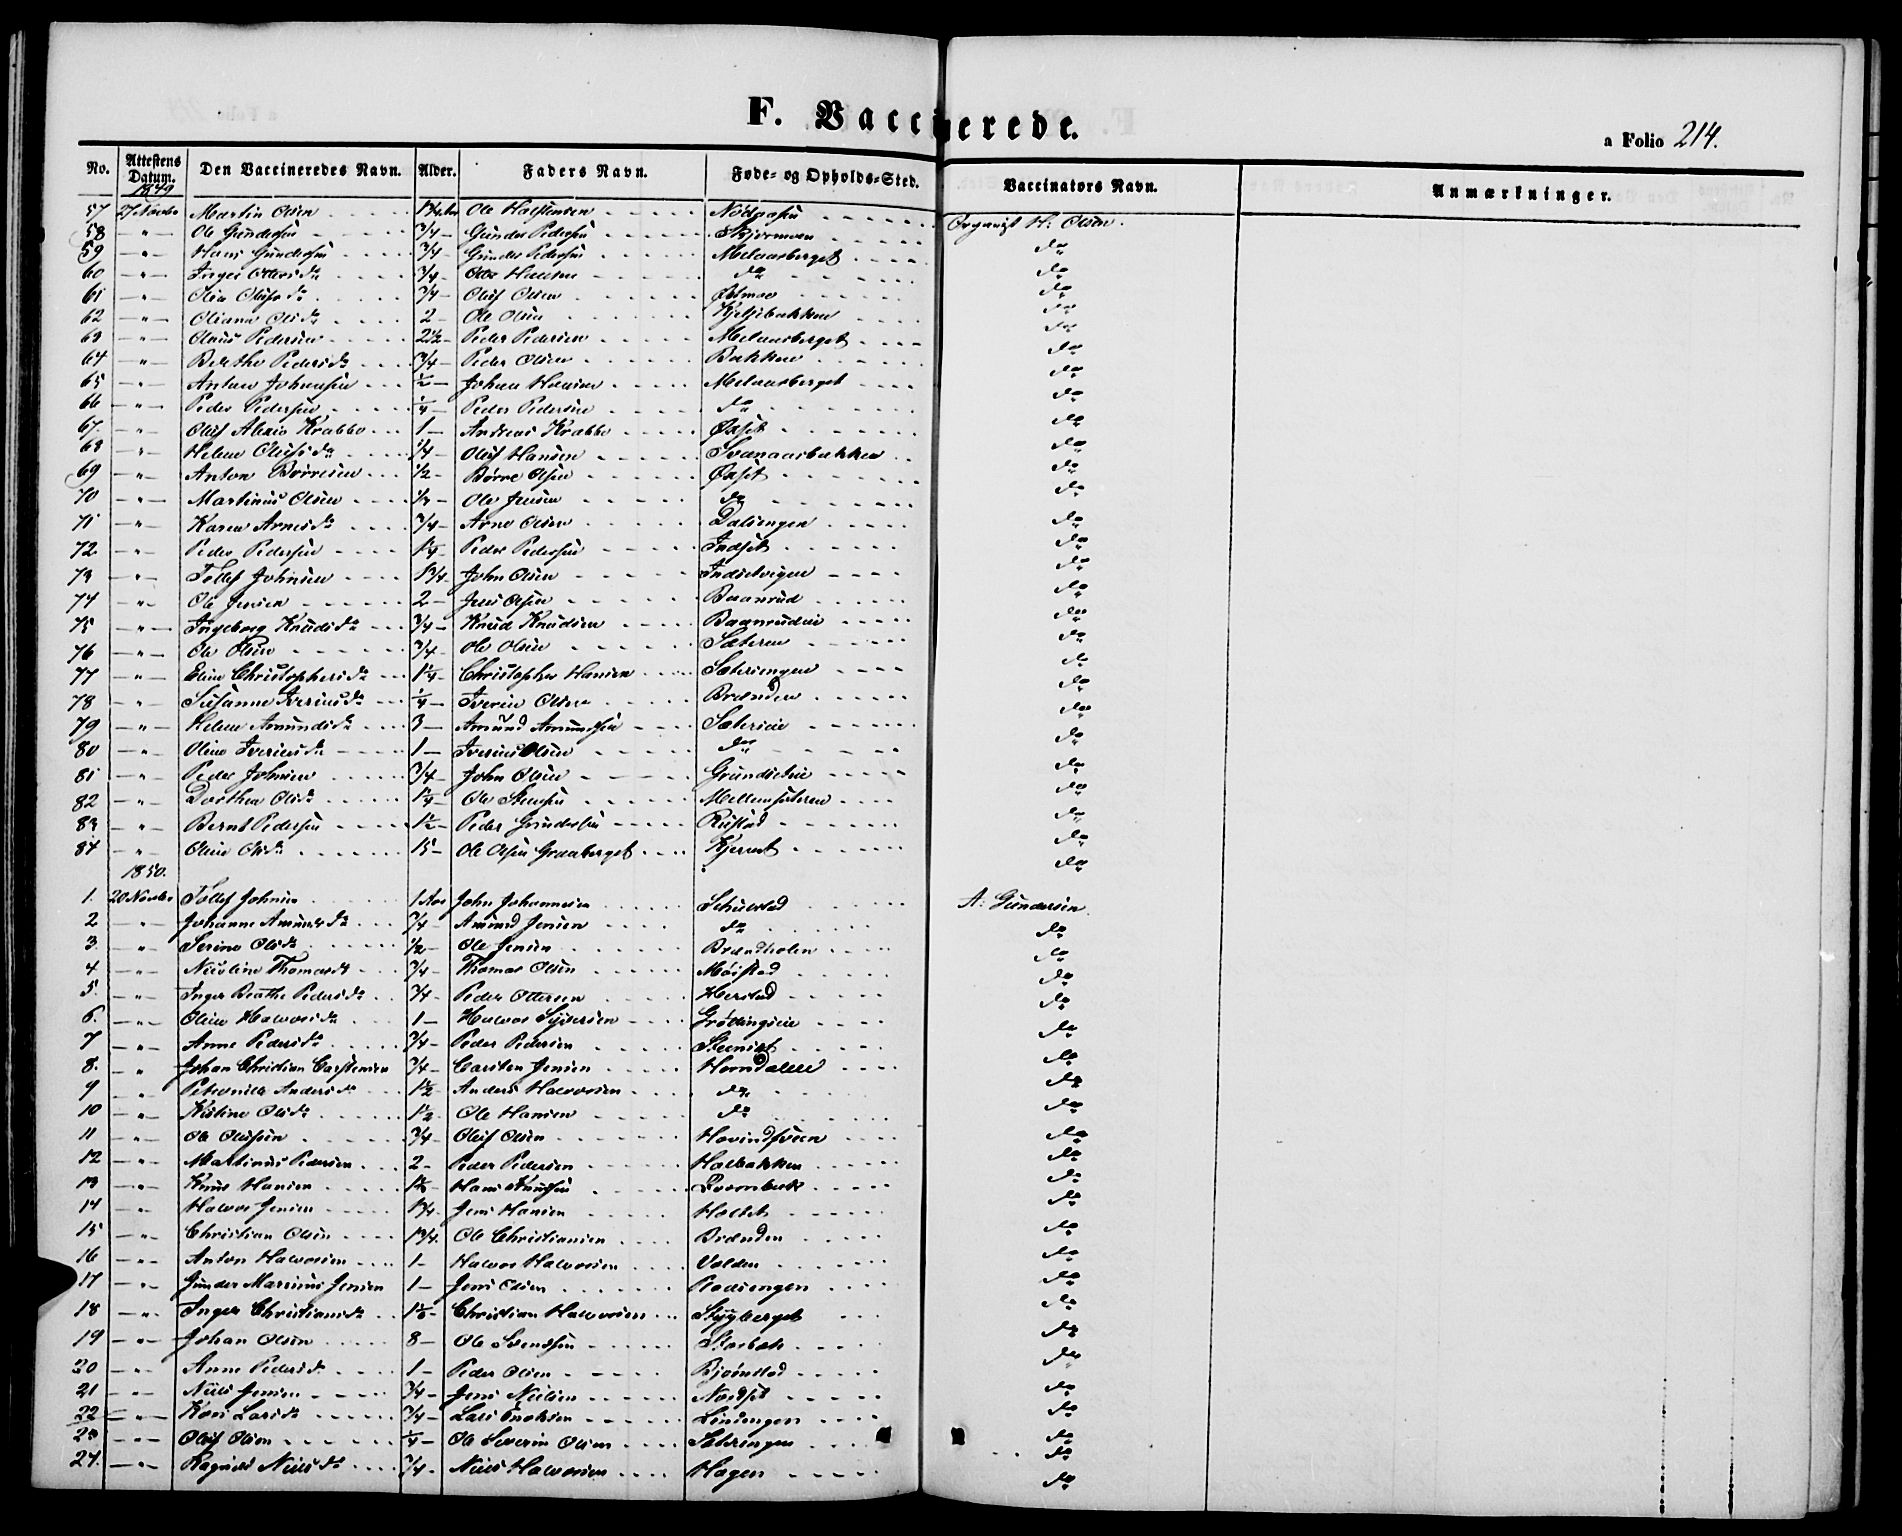 F. Vaccinerede.
a Folio 214.
No. Attestens Datum. Den Vaccineredes Navn. Alder. Faders Navn. Føde- og Opholds-Sted. Vaccinators Navn. Anmærkninger.
1849
57 27 Novbr Martin Olsen 1 3/4 Ole Halstensen Organist H: Olsen.
58 —"— Ole Gundersen 3/4 — Gunder Pedersen Skjermoen do
59 —"— Hans Gundersen 3/4 Gunder Pedersen Melaasberget do
60 —"— Inger Ottersdr 3/4 — Otter Hansen do do
61 —"— Olia Olufsdr 3/4 — Oluf Olsen do
62 —"— Oliana Olsdr 2 — Ole Olsen Kjeljebakken do
63 —"— Olaus Pedersen 2 1/2 — Peder Pedersen Melaasberget do
64 —"— Berthe Pedersdr 3/4 — Peder Olsen Bakken do
65 —"— Anton Johansen 1/2 — Johan Hansen Melaasberget do
66 —"— Peder Pedersen 1/4 Peder Pedersen do do
67 —"— Oluf Alexis Krabbe 1 — Andreas Krabbe Øxset do
68 —"— Helene Olufsdr 1/4 Oluf Hansen Svanaasbakken do
69 —"— Anton Børresen 1/2 — Børre Olsen Øxset do
70 —"— Martinus Olsen Ole Jensen do do
71 —"— Karen Arnesdr 3/4 — Arne Olsen Dalsengen do
72 —"— Peder Pedersen 1 1/4 — Peder Pedersen Indset do
73 —"— Tollef Johnsen 1 3/4 — John Olsen do
74 —"— Ole Jensen 2 — Jens Olsen Baanrud do
75 —"— Ingeborg Knudsdr 3/4 — Knud Knudsen Baanrudeie do
76 —"— Ole Olsen 3/4 Ole Olsen Sæteren do
77 —"— Eline Christophersdr 1 1/4 — Christopher Hansen Sæterengen do
78 —"— Susanne Iverinsdr 1/4 — Iverin Olsen Brænden do
79 —"— Helene Amundsdr 3 — Amund Amundsen Sætereie do
80 —"— Oline Iverinsdr 1 — Iverin Olsen do do
81 —"— Peder Johnsen 3/4 — John Olsen Grundseteie do
82 —"— Dorthea Olsdr 1 1/4 — Ole Steensen Mellemsæteren do
83 —"— Bernt Pedersen 1 1/2 — Peder Gundersen Rustad do
84 —"— Oline Olsdr 15 — Ole Olsen Graaberget Kjernet do
1850.
1. 20 Novbr Tollef Johnsen 1 Aar John Johannesen Schulstad A: Gundersen
2 —"— Johanne Amundsdr 3/4 — Amund Jensen do do
3. —"— Serine Olsdr 1/2 — Ole Jensen Brændholen do
4 —"— Nicoline Thomasdr 3/4 — Thomas Olsen Møistad do
5. —"— Inger Beathe Pedersdr 3/4 — Peder Ottersen Herstad do
6. —"— Oline Halvorsdr 1 — Halvor Syversen Grøtlingseie do
7 —"— Anne Pedersdr 3/4 — Peder Pedersen do
8. —"— Johan Christian Carstensen 3/4 — Carsten Jensen Horndalen do
9 —"— Petronille Andersdr 1 1/2 — Anders Halvorsen do do
10 —"— Kistine Olsdr 1 1/2 — Ole Hansen do do
11 —"— Ole Olufsen 3/4 — Oluf Olsen Hovindsveen do
12 —"— Mattinus Pedersen 2 — Peder Pedersen Holbakken do
13 —"— Knud Hansen Hans Knudsen do
14 —"— Halvor Jensen 1 3/4 — Jens Hansen Holtet do
15 —"— Christian Olsen 1 3/4 — Ole Christiansen Brænden do
16 —"— Anton Halvorsen 1 — Halvor Halvorsen Volden do
17 —"— Gunder Marinius Jensen 1 — Jens Olsen Rodsengen do
18 —"— Inger Christiansdr Christian Halvorsen Stygberget do
19 —"— Johan Olsen 8 — Ole Svendsen Storbæk do
20 —"— Anne Pedersdr 1 — Peder Olsen Bjørnstad do
21 —"— Niels Jensen 3/4 — Jens Nielsen Nordset do
22 —"— Kari Larsdr 3/4 — Lars Enoksen Lindengen do
23 —"— Oluf Olsen 1/4 — Ole Severin Olsen Sæterengen do
24. —"— Ragnild Nielsdr 3/4 — Niels Halvorsen Hagen do